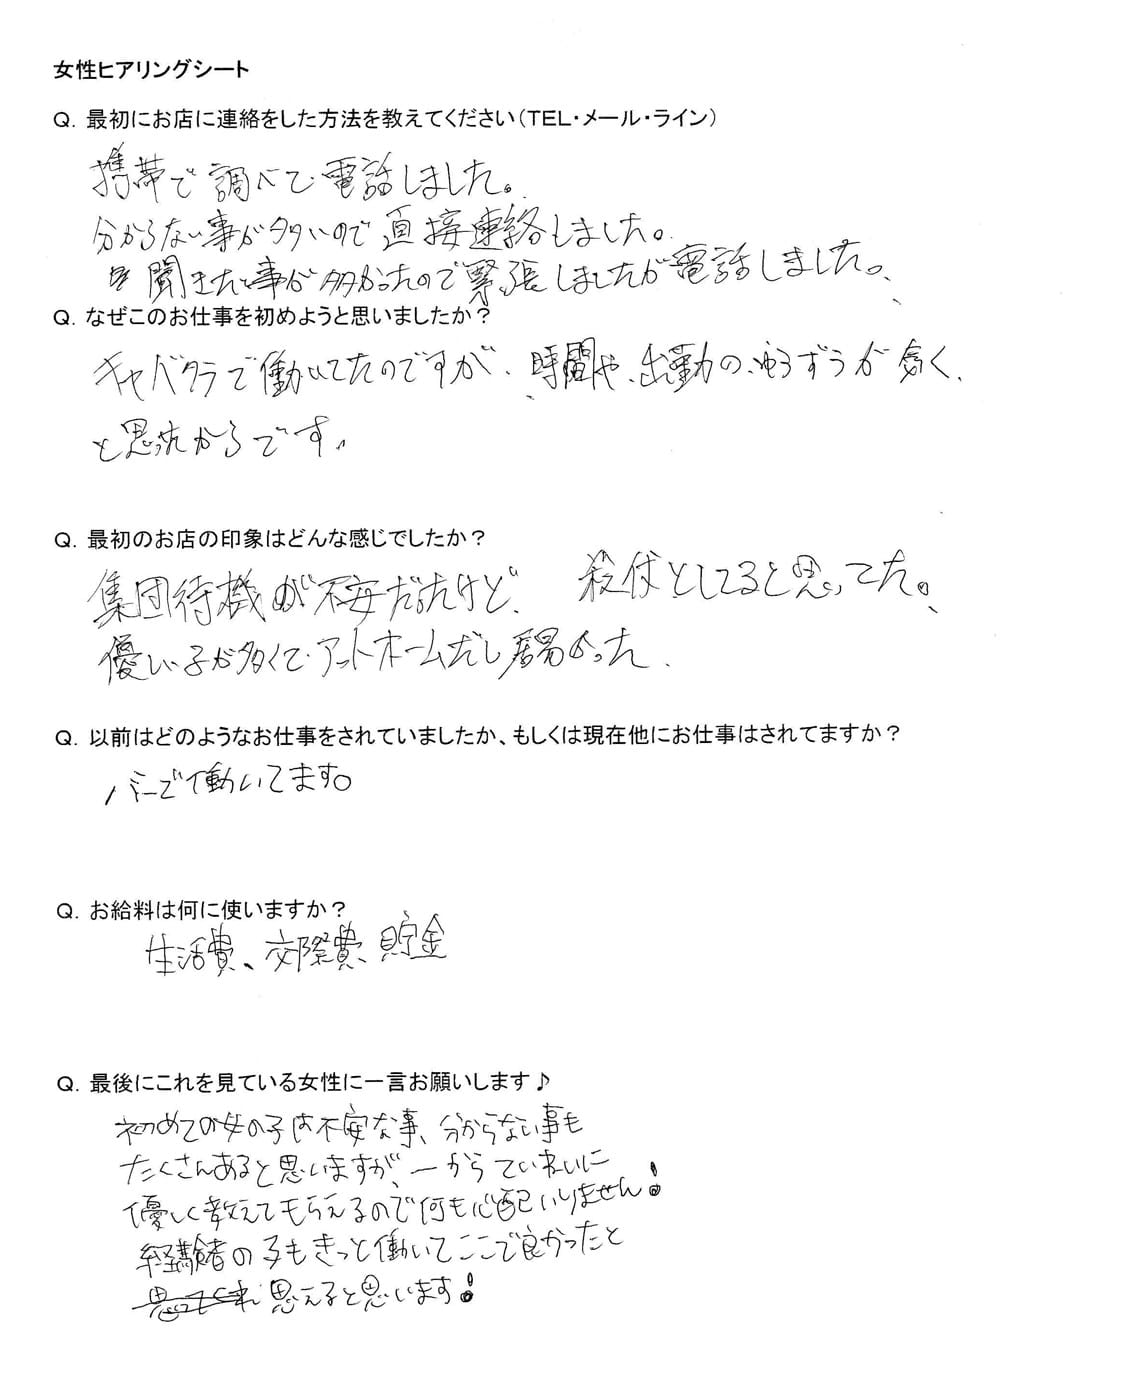 女性ヒアリングシート
Q. 最初にお店に連絡をした方法を教えてください(TEL・メール・ライン)
携帯で調べて電話しました。
分からない事が多いので直接連絡しました。
聞きたい事が多かったので緊張しましたが電話しました。
Q. なぜこのお仕事を初めようと思いましたか?
キャバクラで働いてたのですが、時間や、出勤の、ゆうずうが効く、
と思ったからです。
Q. 最初のお店の印象はどんな感じでしたか?
集団待機が不安だったけど、 殺伐としてると思ってた。
優しい子が多くて、アットホームだし居易かった。
Q. 以前はどのようなお仕事をされていましたか、もしくは現在他にお仕事はされてますか?
バーで働いてます。
Q. お給料は何に使いますか?
生活費、交際費、貯金
Q. 最後にこれを見ている女性に一言お願いします♪
初めての女の子は不安な事、分からない事も
たくさんあると思いますが、一からていねいに
優しく教えてもらえるので何も心配いりません!
経験者の子もきっと働いてここで良かったと
思えると思います!